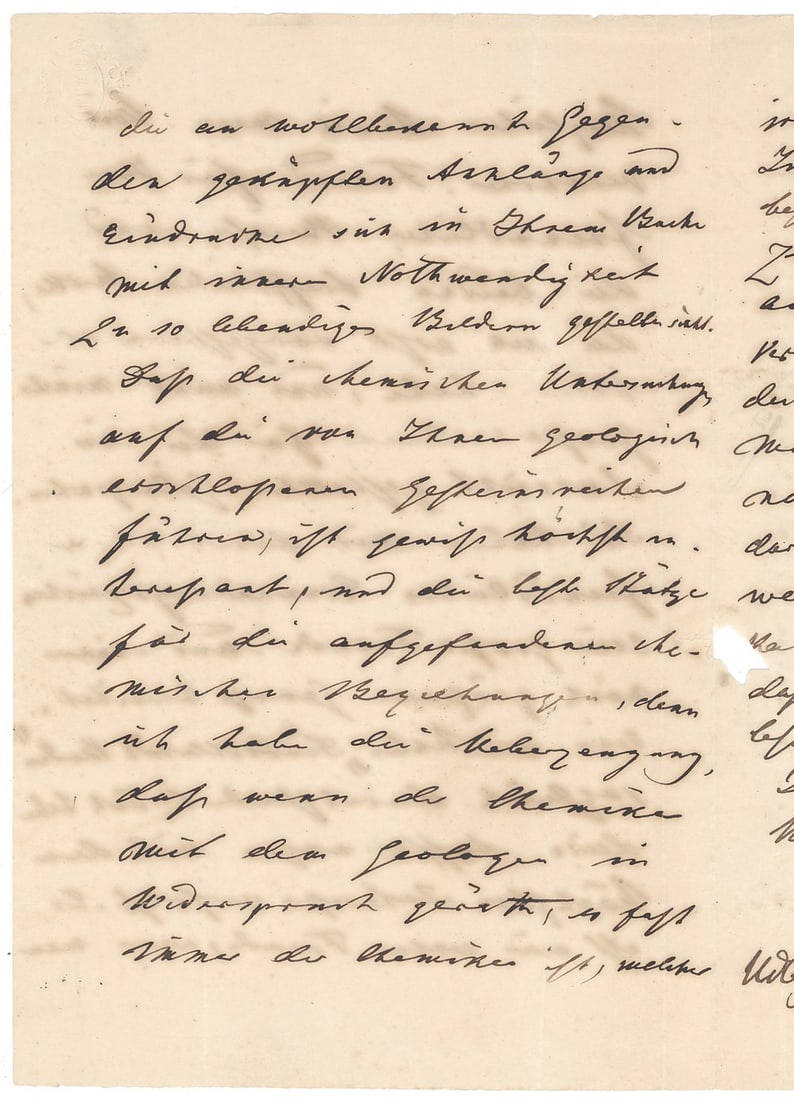 die an wohlbekannte Gegen-
den geknüpften Anklänge und
Eindrücke sich in Ihrem Buche
mit innerer Nothwendigkeit
zu so lebendigen Bildern gestaltet
Daß die chemischen Untersuchungen
auf die von Ihnen geologisch
erschloßenen Gesteinsreihen
führen, ist gewiß höchst in-
tereßant, und die beste Stütze
für die aufgefundenen che-
mischen Beziehungen, denn
ich habe die Ueberzeugung,
daß wenn der Chemiker
mit dem Geologen in
Widerspruch geräth, es fast
immer der Chemiker ist, welcher